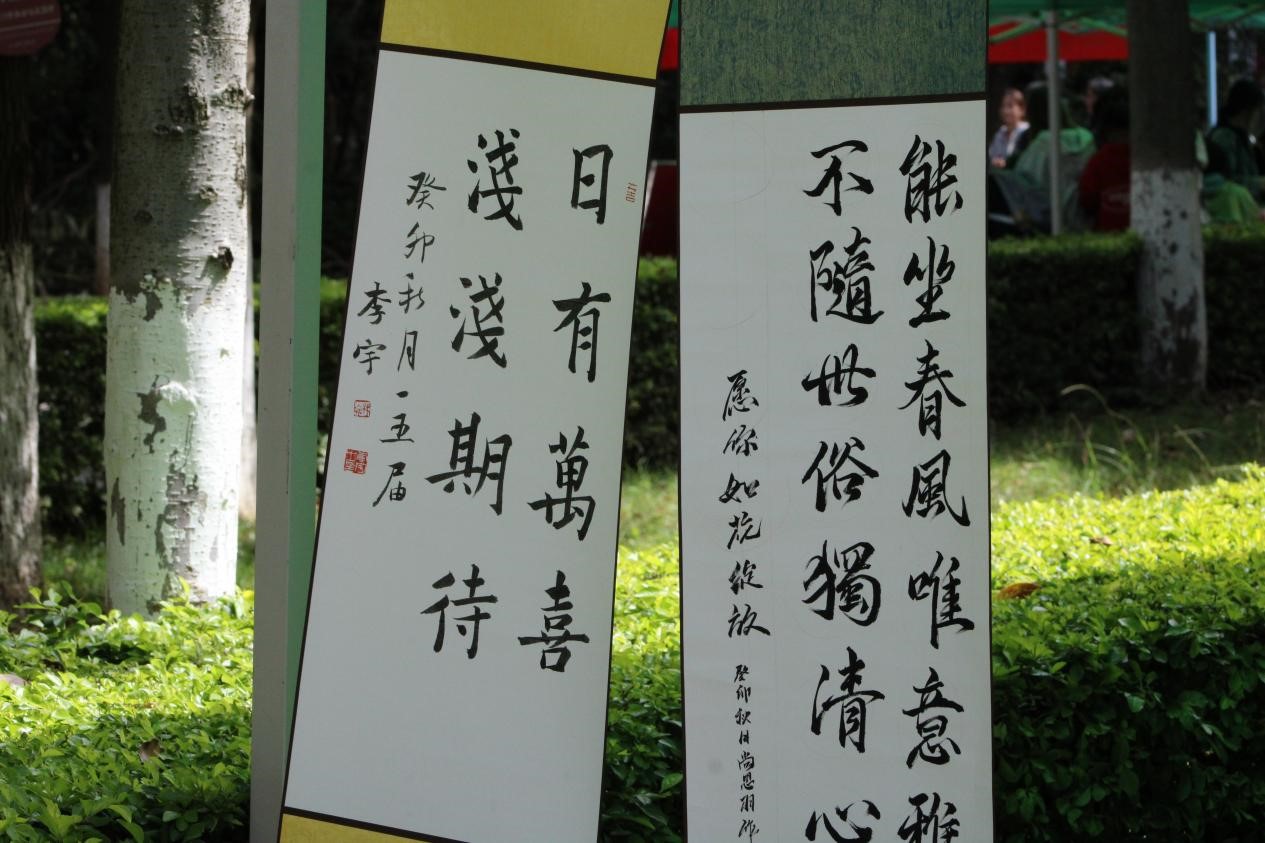 日有萬喜
淺淺期待
癸卯秋月一五届
李宇
能坐春風唯意雅
不隨世俗獨清心
愿你如花绽放
癸卯秋日尚思羽作